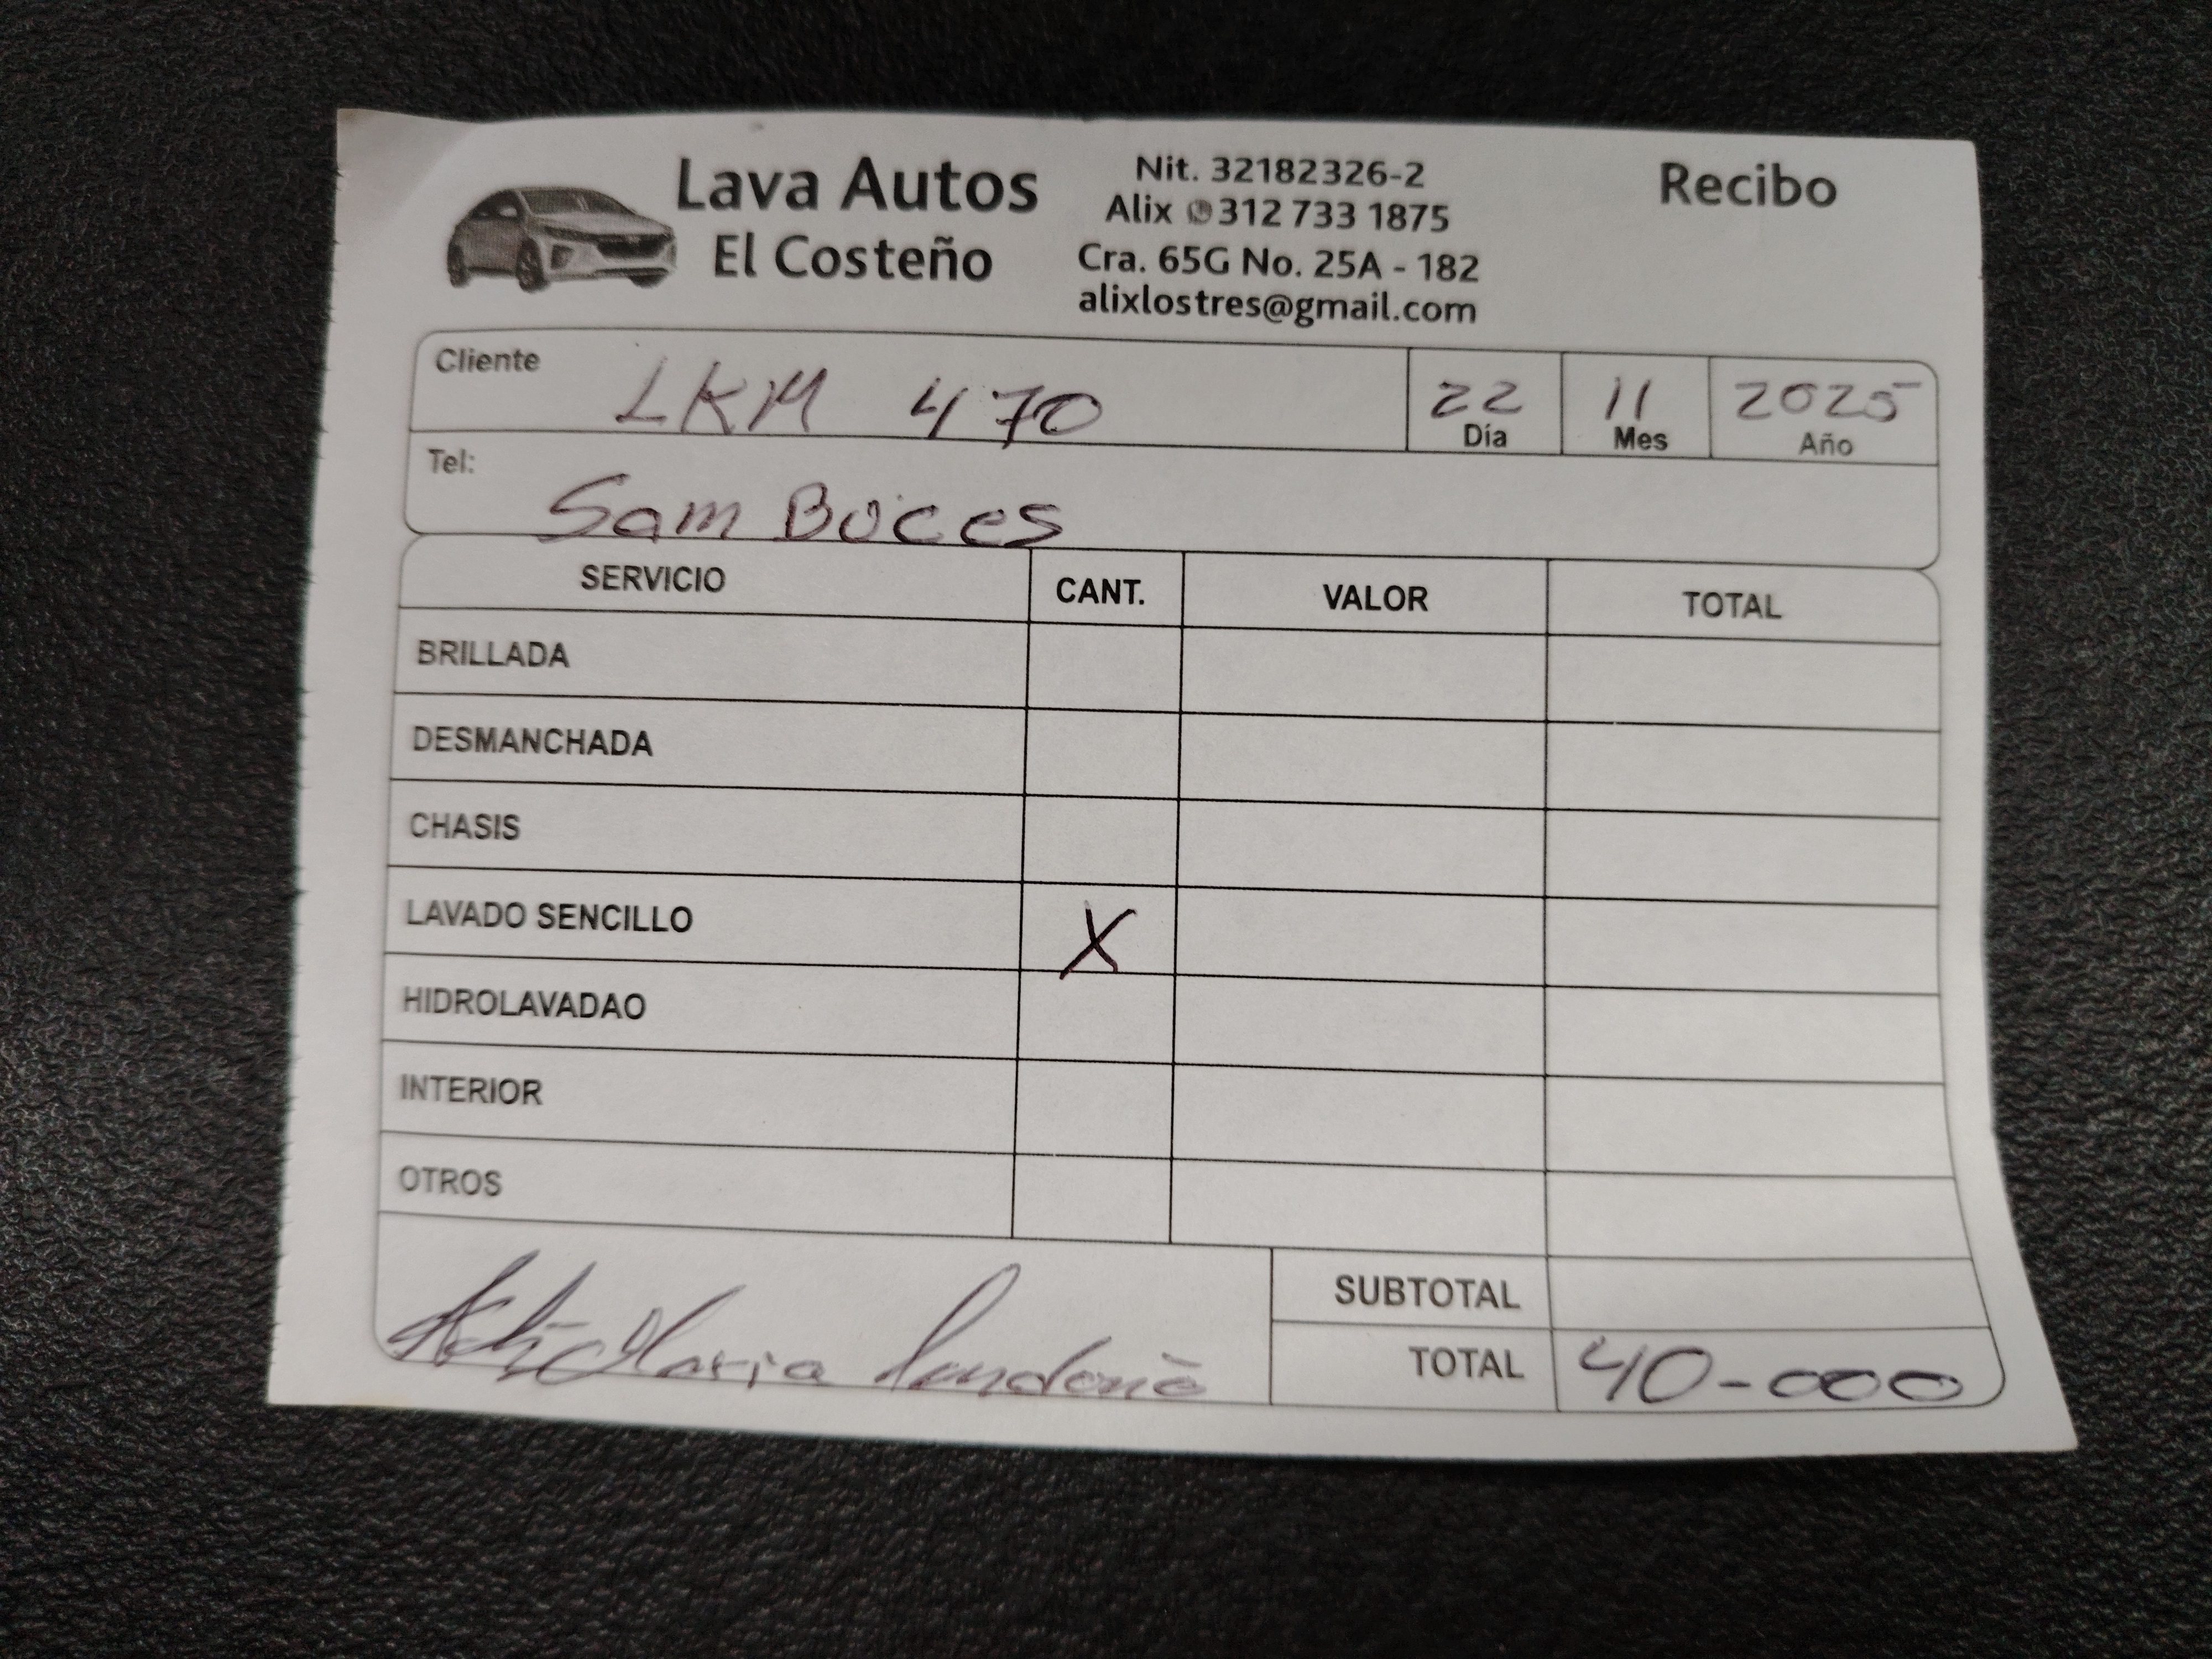 Lava Autos
El Costeño
Nit. 32182326-2
Alix 312 733 1875
Cra. 65G No. 25A - 182
alixlostres@gmail.com
Recibo
Cliente LKM 470
22 11 2025
Día Mes Año
Tel: Sam Buces
SERVICIO CANT. VALOR TOTAL
BRILLADA
DESMANCHADA
CHASIS
LAVADO SENCILLO X
HIDROLAVADAO
INTERIOR
OTROS
Maria
SUBTOTAL
TOTAL 40-000